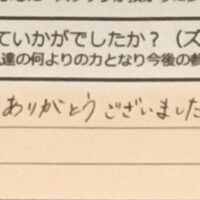 ていかがでしたか？（ズ
達の何よりの力となり今後の
ありがとうございました